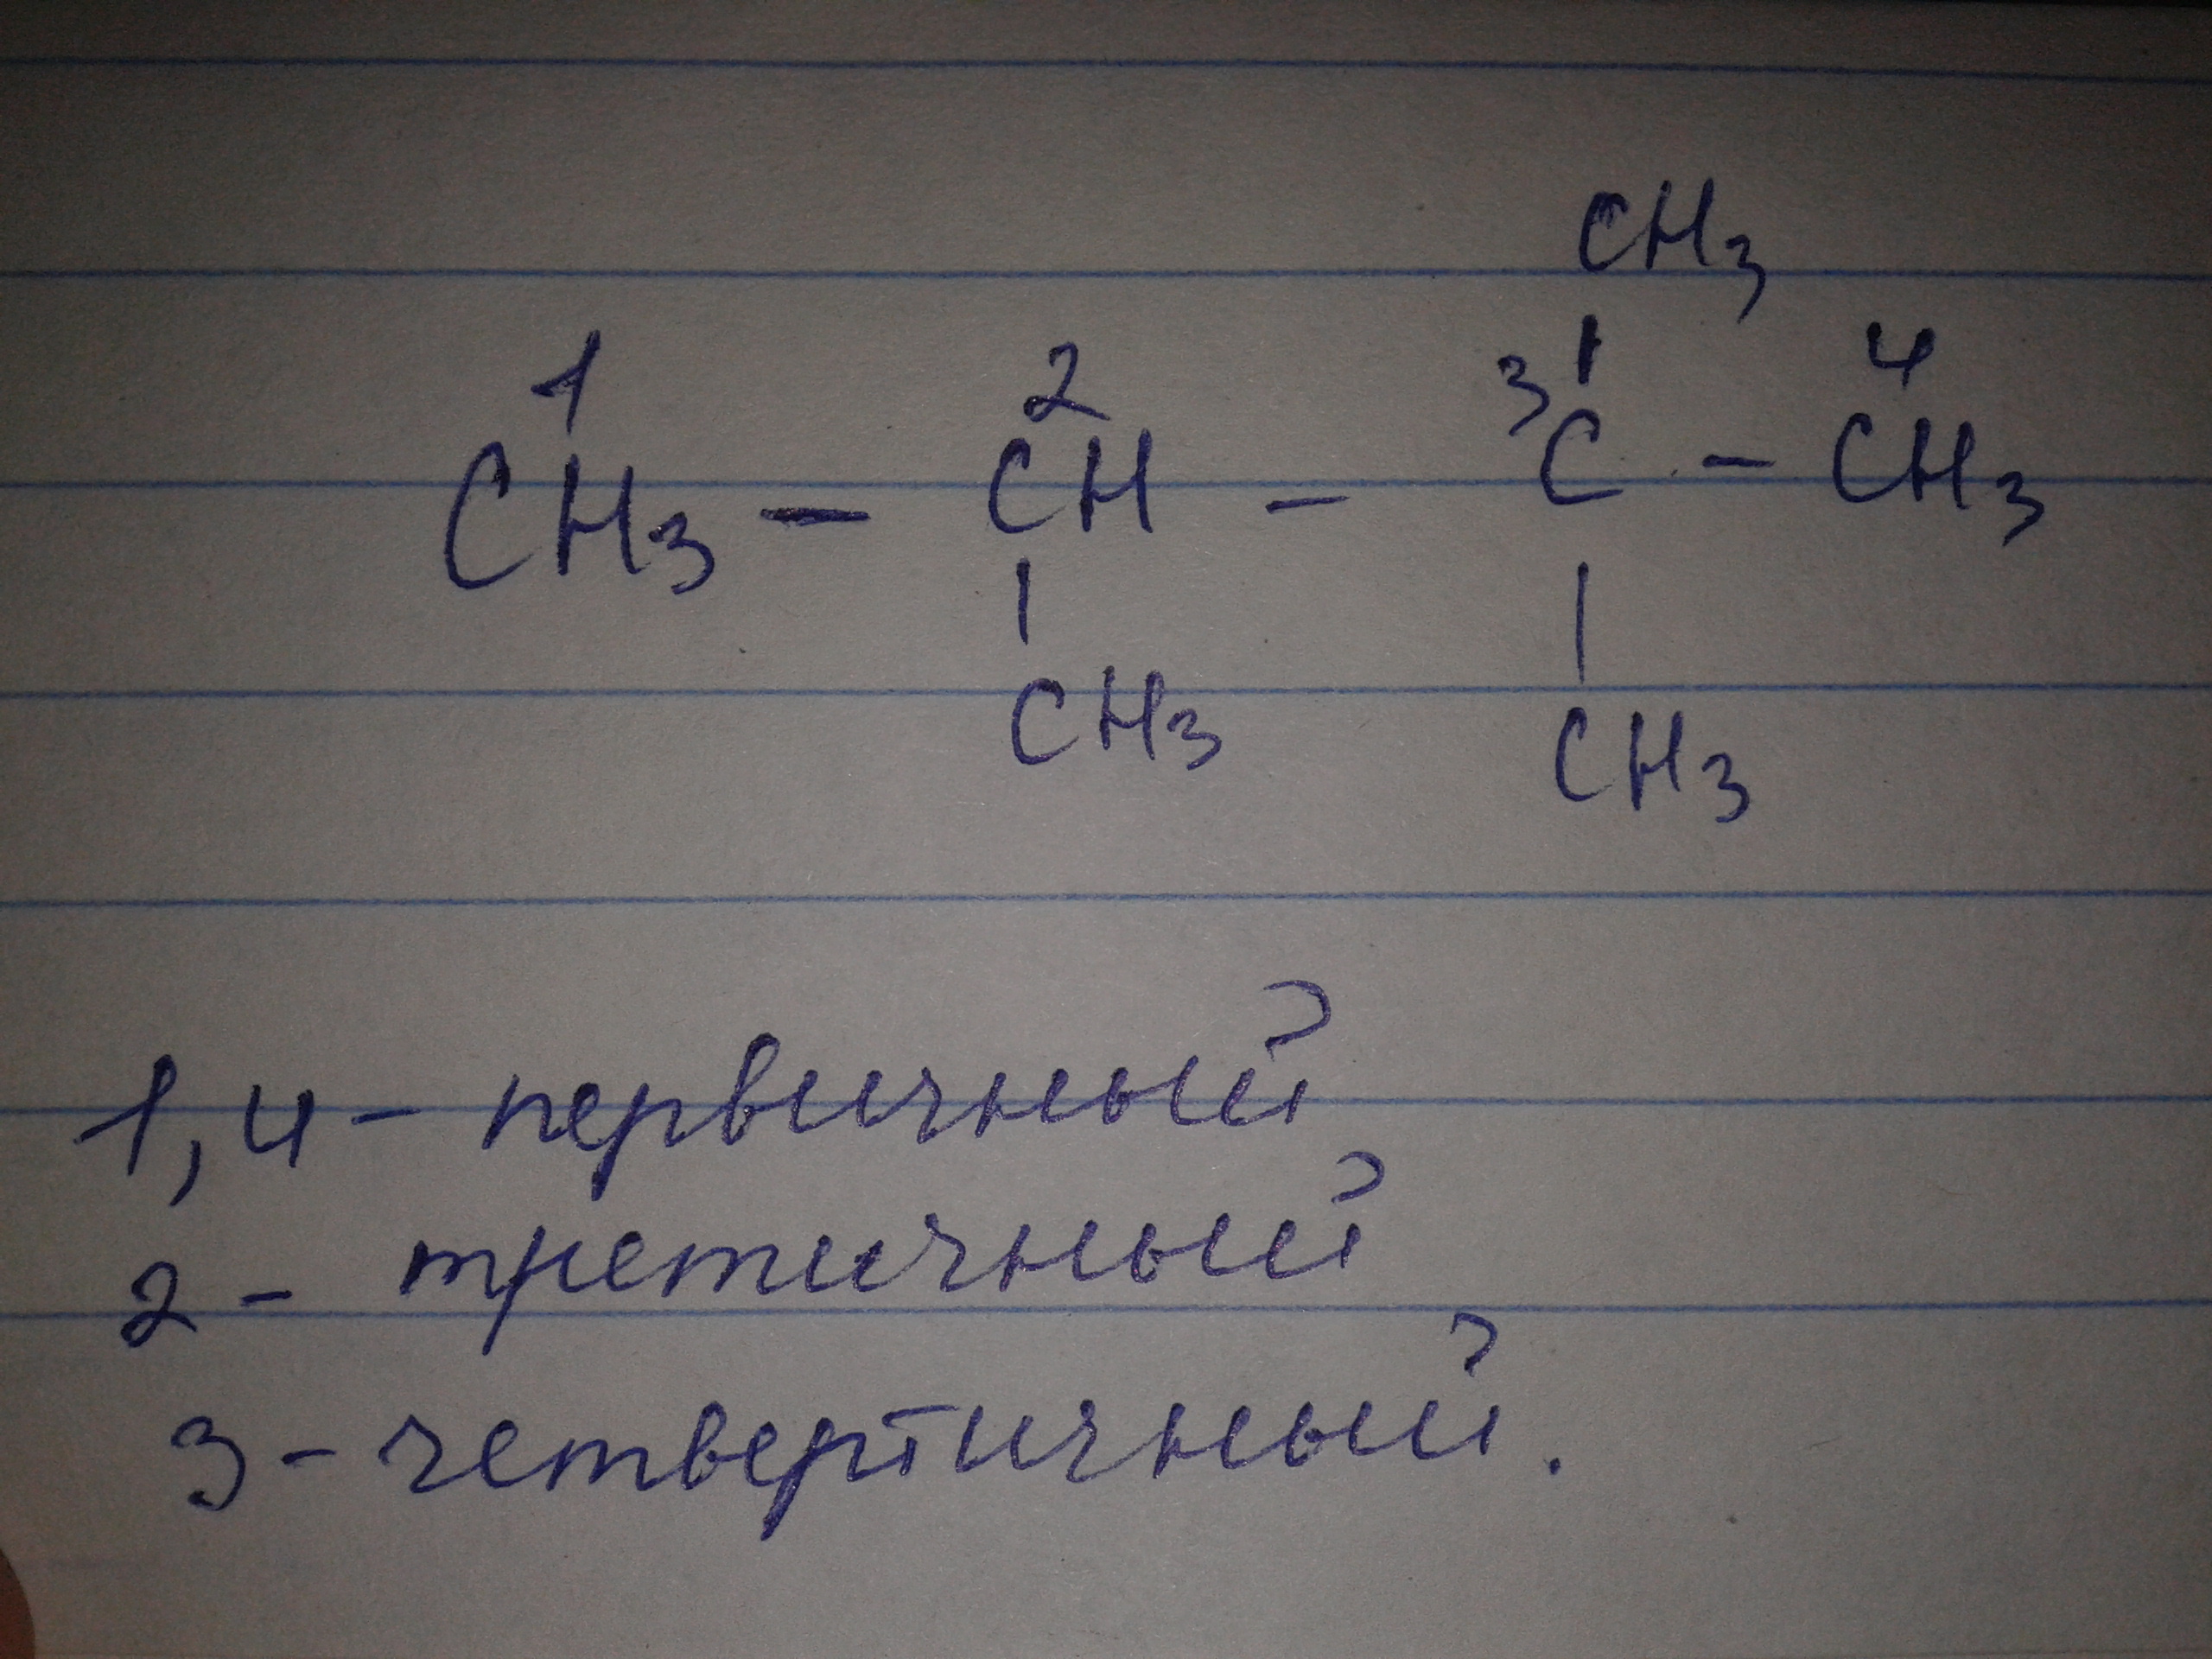 CH3
1 2 3 4
CH3 - CH - C - CH3
CH3 CH3
1,4 - первичный
2 - третичный
3 - четвертичный.